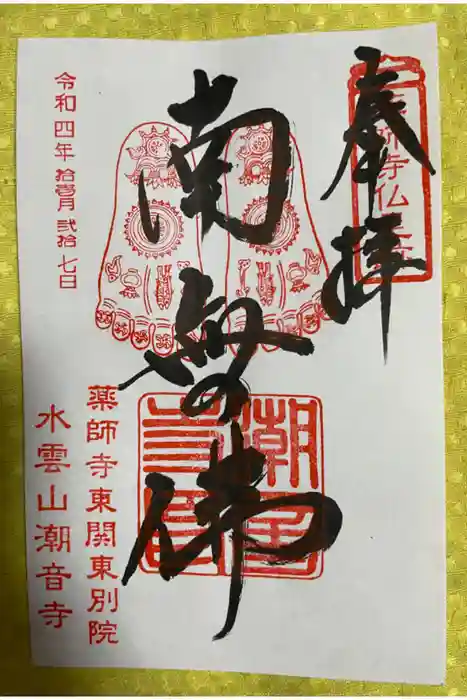 奉拝
薬師寺仏足石
南無佛
潮音寺印
令和四年拾壱月弐拾七日
薬師寺東関東別院
水雲山潮音寺